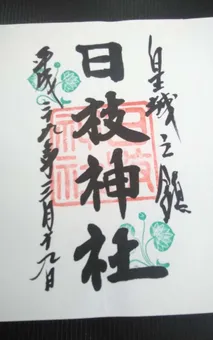 皇城之鎮
日枝神社
平成二九年三月十九日
日枝
神社